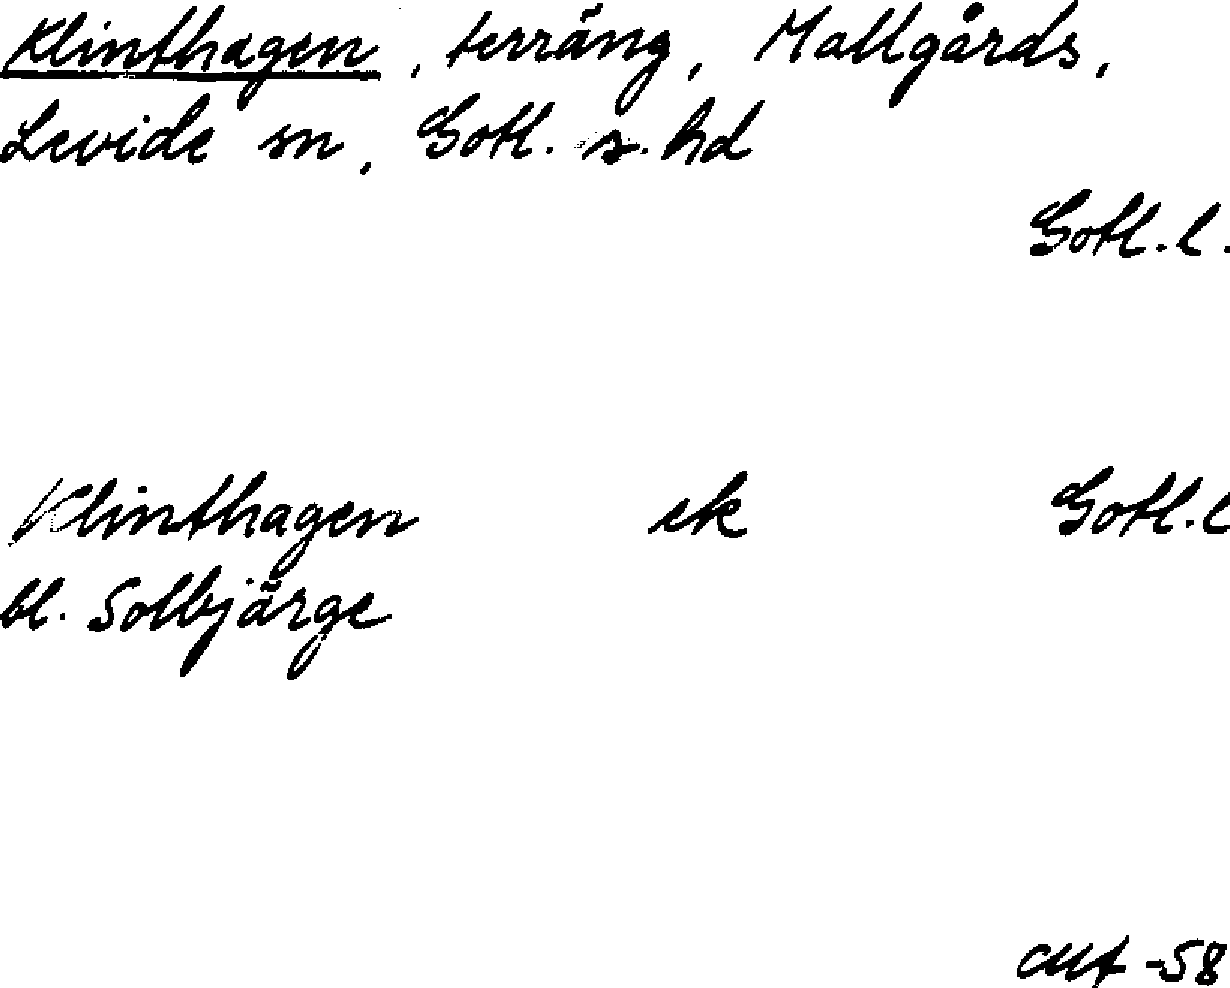 Klinthagen, terräng, Mallgårds,
Levide sn, Gotl. s. hd
Gotl. l.
Klinthagen ek Gotl. l
bl. Solbjärge
-58